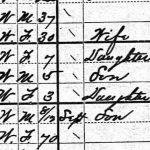 W M 37
W F 30 Wife
W F 7 Daughter
W M 5 Son
W F 3 Daughter
W M 8/12 Sept Son
W F 70